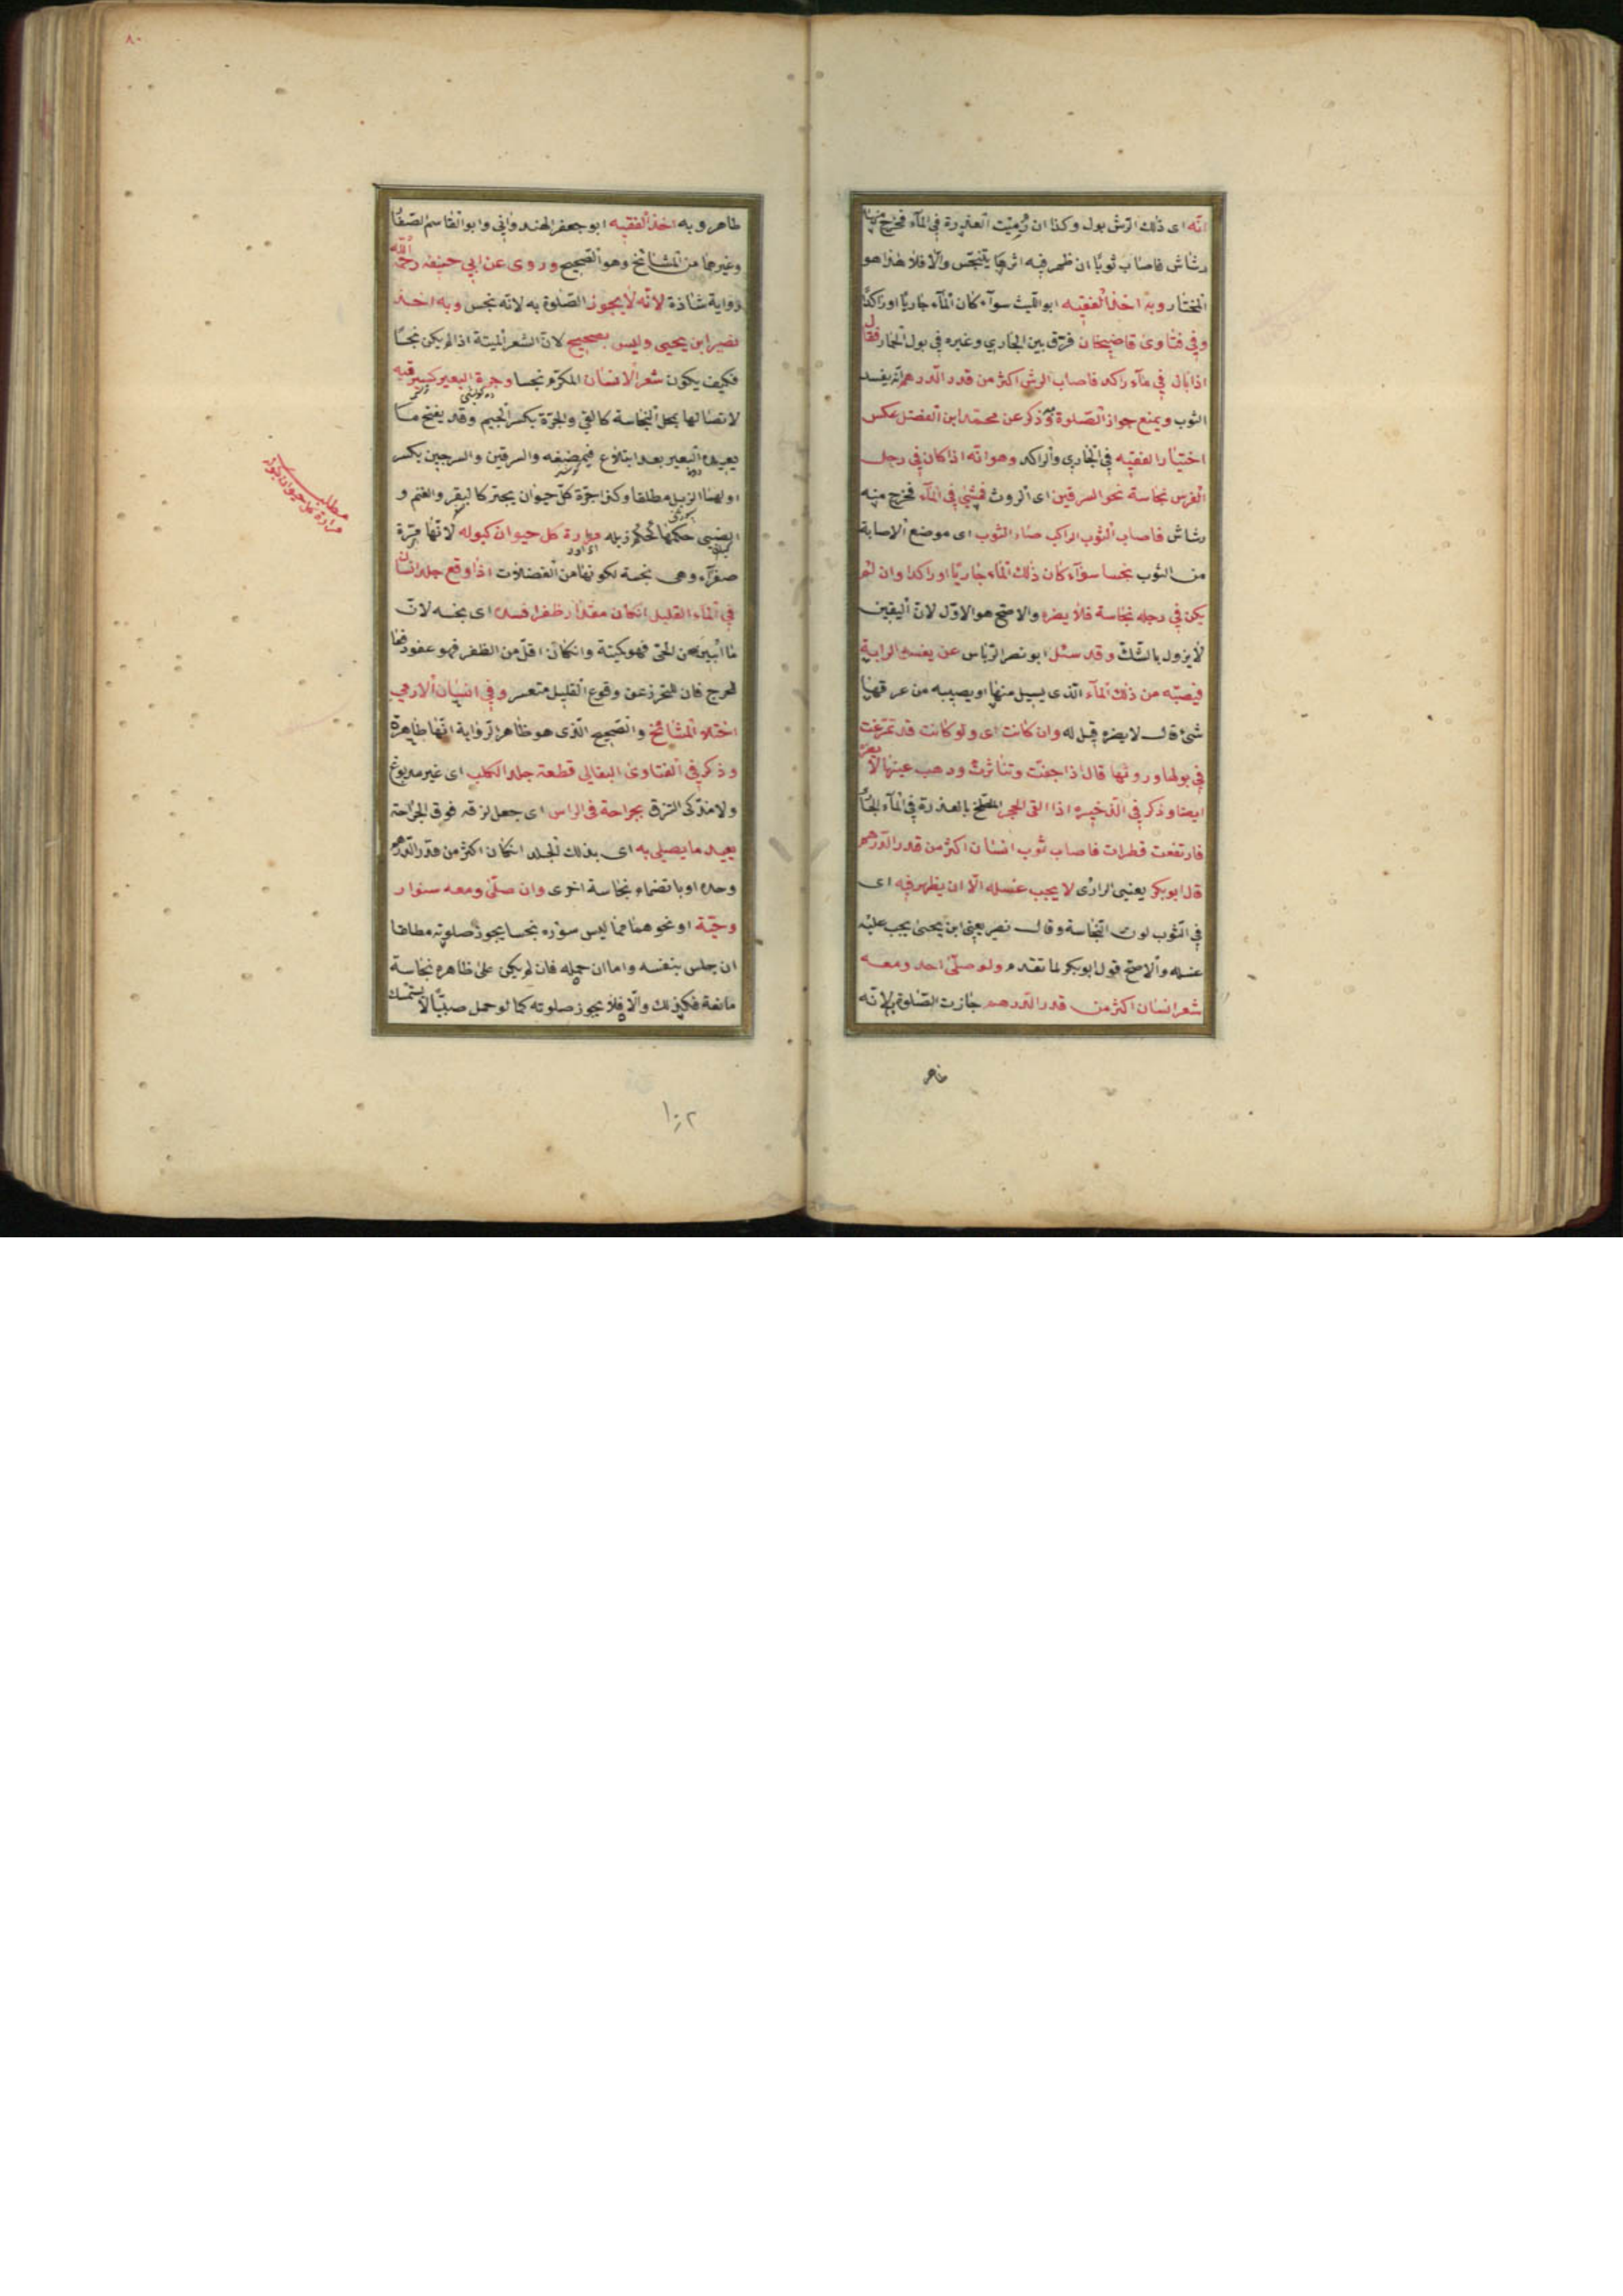 انّه اى ذلك الرّش بول وكذا ان رميت العذرة في الماء فخرج منها
رشاش فاصاب ثوبا ان ظهر فيه اثرها يتنجّس والّا فلا هذا هو
المختار وبه اخذ الفقيه ابو اللّيث سوآء كان الماء جاريا او راكدا
وفي فتاوى قاضيخان فرّق بين الجاري وغيره في بول الحمار فقال
اذا بال في ماء راكد فاصاب الرش اكثر من قدر الدّرهم انه يفسد
الثوب ويمنع جواز الصّلوة وذكر عن محمّد ابن الفضل عكس
اختيار الفقيه في الجاري والراكد وهو انّه اذا كان في رجل
الفرس نجاسة نحو السرقين اى الروث فمشى في الماء فخرج منه
رشاش فاصاب الثوب الراكب صار الثوب اى موضع الاصابة
من الثوب نجسا سوآء كان ذلك الماء جاريّا او راكدا وان لم
يكن في رجله نجاسة فلا يضره والاصح هو الاوّل لانّ اليقين
لا يزول بالشّك وقد سئل ابو نصر الدبّاس عن يغسل الرابة
فيصبّه من ذلك الماء الّذى يسيل منها او يصيبه من عرقها
شئ قال لا يضره قيل له وان كانت اى ولو كانت قد تمرّغت
في بولها وروثها قال اذا جفّت وتناثرت وذهب عينها لا يضرّ
ايضا وذكر في الذّخيره اذا القى الحجر المتلطخ بالعذرة في الماء الجار
فارتفعت قطرات فاصاب ثوب انسان اكثر من قدر الدّرهم
قال ابو بكر يعنى الرازى لا يجب غسله الّا ان يظهر فيه اى
في الثوب لون النّجاسة وقال نصر يعنى ابن يحيى يجب عليه
غسله والاصحّ قول ابو بكر لما تقدم ولو صلّى احد ومعه
شعر انسان اكثر من قدر الدّرهم جازت الصّلوة به لانّه
طاهر
٨٠
طاهر وبه اخذ الفقيه ابو جعفر الهندوانى وابو القاسم الصّفّا
وغيرهما من المشائخ وهو الصّحيح وروى عن ابى حنيفه رحمه الله
رواية شاذة لانّه لا يجوز الصّلوة به لانّه نجس وبه اخذ
نصير ابن يحيى وليس بصحيح لانّ الشعر الميتة اذا لم يكن نجسًا
فكيف يكون شعر الانسان المكرّم نجسا وجرة البعير كسرقينه
لاتصالها بمحل النجاسة كالقي والجرّة بكسر الجيم وقد يفتح ما
يعيده البعير بعد ابتلاع فيمضغه والسرقين والسرجين بكسر
اولهما الزبل مطلقا وكذا جرّة كلّ حيوان يجتر كالبقر والغنم و
الضبى حكمها كحكم زبله مرارة كل حيوان كبوله لانّها مرّة
صفرآء وهى نجسة لكونها من الفضلات اذا وقع جلد انسان
في الماء القليل انكان مقدار ظفر افسده اى نجسه لانّ
ما ابين من الحّى فهو كميتة وانكان اقلّ من الظفر فهو عفو دفعا
للحرج فان التحرز عن وقوع القليل متعسر وفي اسنان الادمي
اختلاف المشائخ والصّحيح الّذى هو ظاهر الرّواية انّها طاهرة
وذكر في الفتاوى البقالى قطعة جلد الكلب اى غير مدبوغ
ولا مذكّى التزق بجراحة في الراس اى جعل لزقه فوق الجراحة
يعيد ما يصلى به اى بذلك الجلد انكان اكثر من قدر الدّرهم
وحده او بانضمام نجاسة اخرى وان صلّى ومعه سنّور
وحيّة او نحوهما ممّا ليس سوره نجسا يجوز صلوته مطلقا
ان جلس بنفسه واما ان حمله فان لم يكن على ظاهره نجاسة
مانعة فكذلك والّا فلا يجوز صلوته كما لو حمل صبيّا لا يستمسك
مطلب
مرارة كل حيوان كبوله
١٠٢